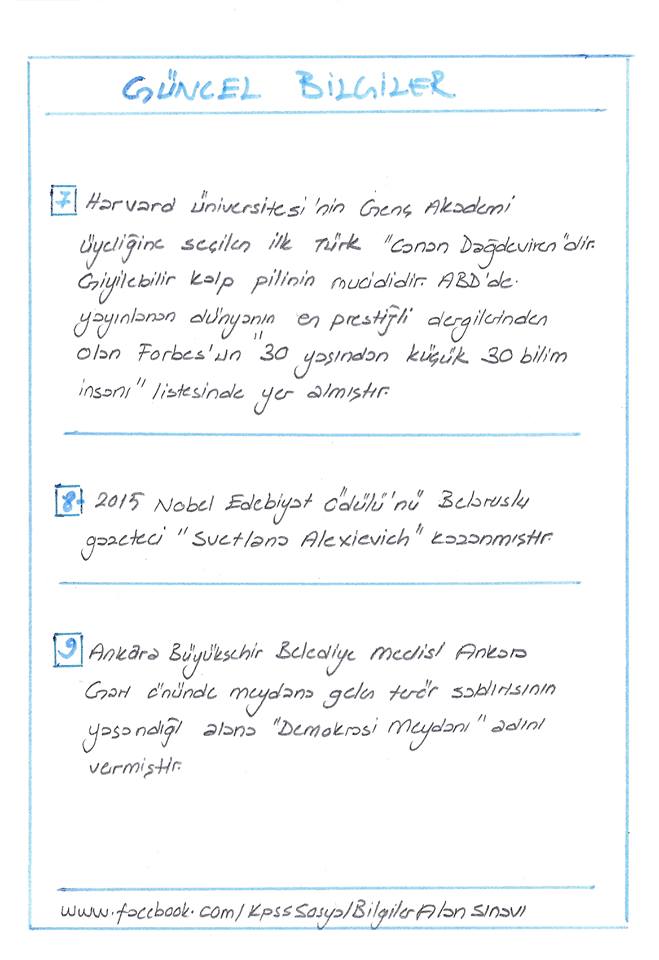 GÜNCEL BİLGİLER
7 Harvard Üniversitesi'nin Genç Akademi
üyeliğine seçilen ilk Türk "Canan Dağdeviren"dir.
Giyilebilir kalp pilinin mucididir. ABD'de
yayınlanan dünyanın en prestijli dergilerinden
olan Forbes'un "30 yaşından küçük 30 bilim
insanı" listesinde yer almıştır.
8- 2015 Nobel Edebiyat Ödülü'nü Belaruslu
gazeteci "Svetlana Alexievich" kazanmıştır.
9 Ankara Büyükşehir Belediye Meclisi Ankara
Garı önünde meydana gelen terör saldırısının
yaşandığı alana "Demokrasi Meydanı" adını
vermiştir.
www.facebook.com/KpssSosyalBilgilerAlanSınavı